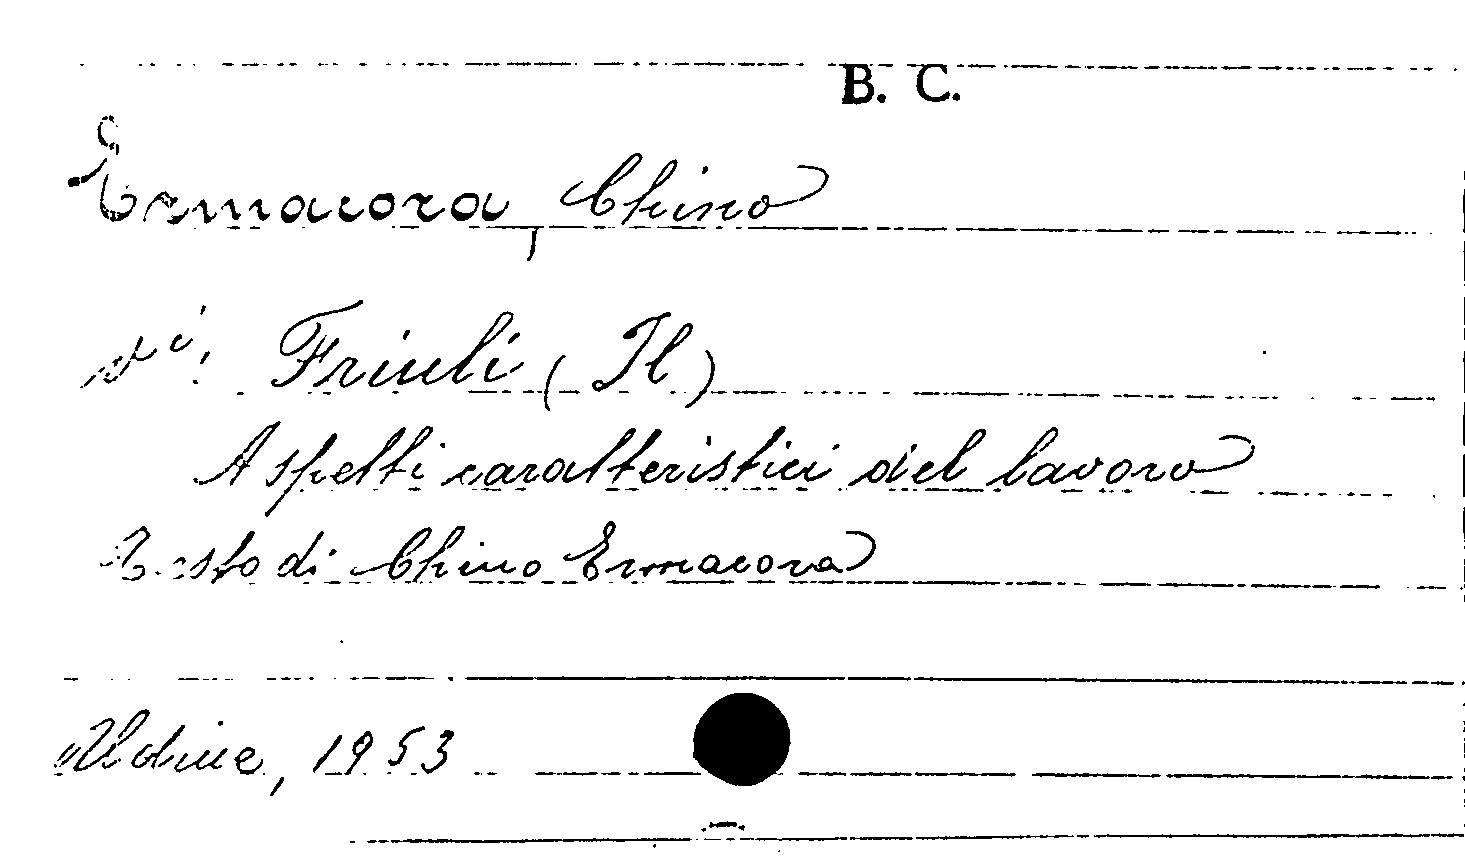 B. C.
Ermacora, Chino
vi: Friuli (Il)
Aspetti caratteristici del lavoro
Testo di Chino Ermacora
Udine, 1953